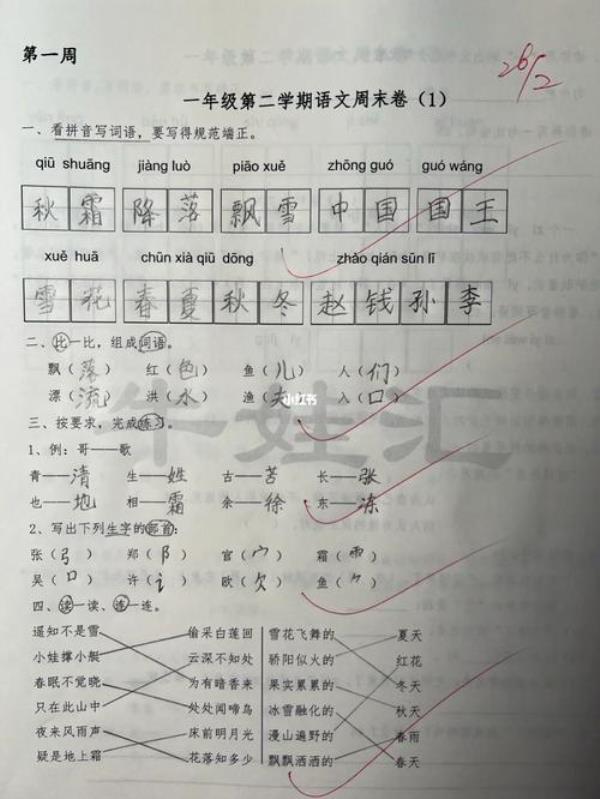 第一周
26/2
一年级第二学期语文周末卷（1）
一、看拼音写词语，要写得规范端正。
qiū shuāng jiàng luò piāo xuě zhōng guó guó wáng
秋霜 降落 飘雪 中国 国王
xuě huā chūn xià qiū dōng zhào qián sūn lǐ
雪花 春夏秋冬 赵钱孙李
二、比一比，组成词语。
飘（落） 红（色） 鱼（儿） 人（们）
漂（流） 洪（水） 渔（夫） 入（口）
小红书
牛娃汇
三、按要求，完成练习。
1、例：哥——歌
青——清 生——姓 古——苦 长——张
也——地 相——霜 余——徐 东——冻
2、写出下列生字的部首：
张（弓） 郑（阝） 官（宀） 霜（⻗）
吴（口） 许（讠） 欧（欠） 鱼（⺈）
四、读一读，连一连。
遥知不是雪 偷采白莲回 雪花飞舞的 夏天
小娃撑小艇 云深不知处 骄阳似火的 红花
春眠不觉晓 为有暗香来 果实累累的 冬天
只在此山中 处处闻啼鸟 冰雪融化的 秋天
夜来风雨声 床前明月光 漫山遍野的 春雨
疑是地上霜 花落知多少 飘飘洒洒的 春天